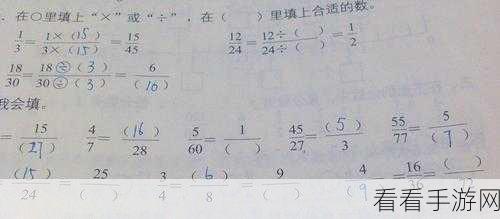 . 在○里填上“×”或“÷”，在（ ）里填上合适的数。
1/3 = 1×(15)/3×(15) = 15/45 12/24 = 12÷( )/24÷( ) = 1/2
18/30 = 18÷(3)/30÷(3) = 6/(10)
我会填。
= 15/(21) 4/7 = (16)/28 5/60 = 1/( ) 45/27 = (5)/3 55/77 = 5/(7)
(15)/24 = 25/( ) 3/4 = (6)/8 = 9/( ) 4/(9 = 16/36 = ( )/72
看看手游网